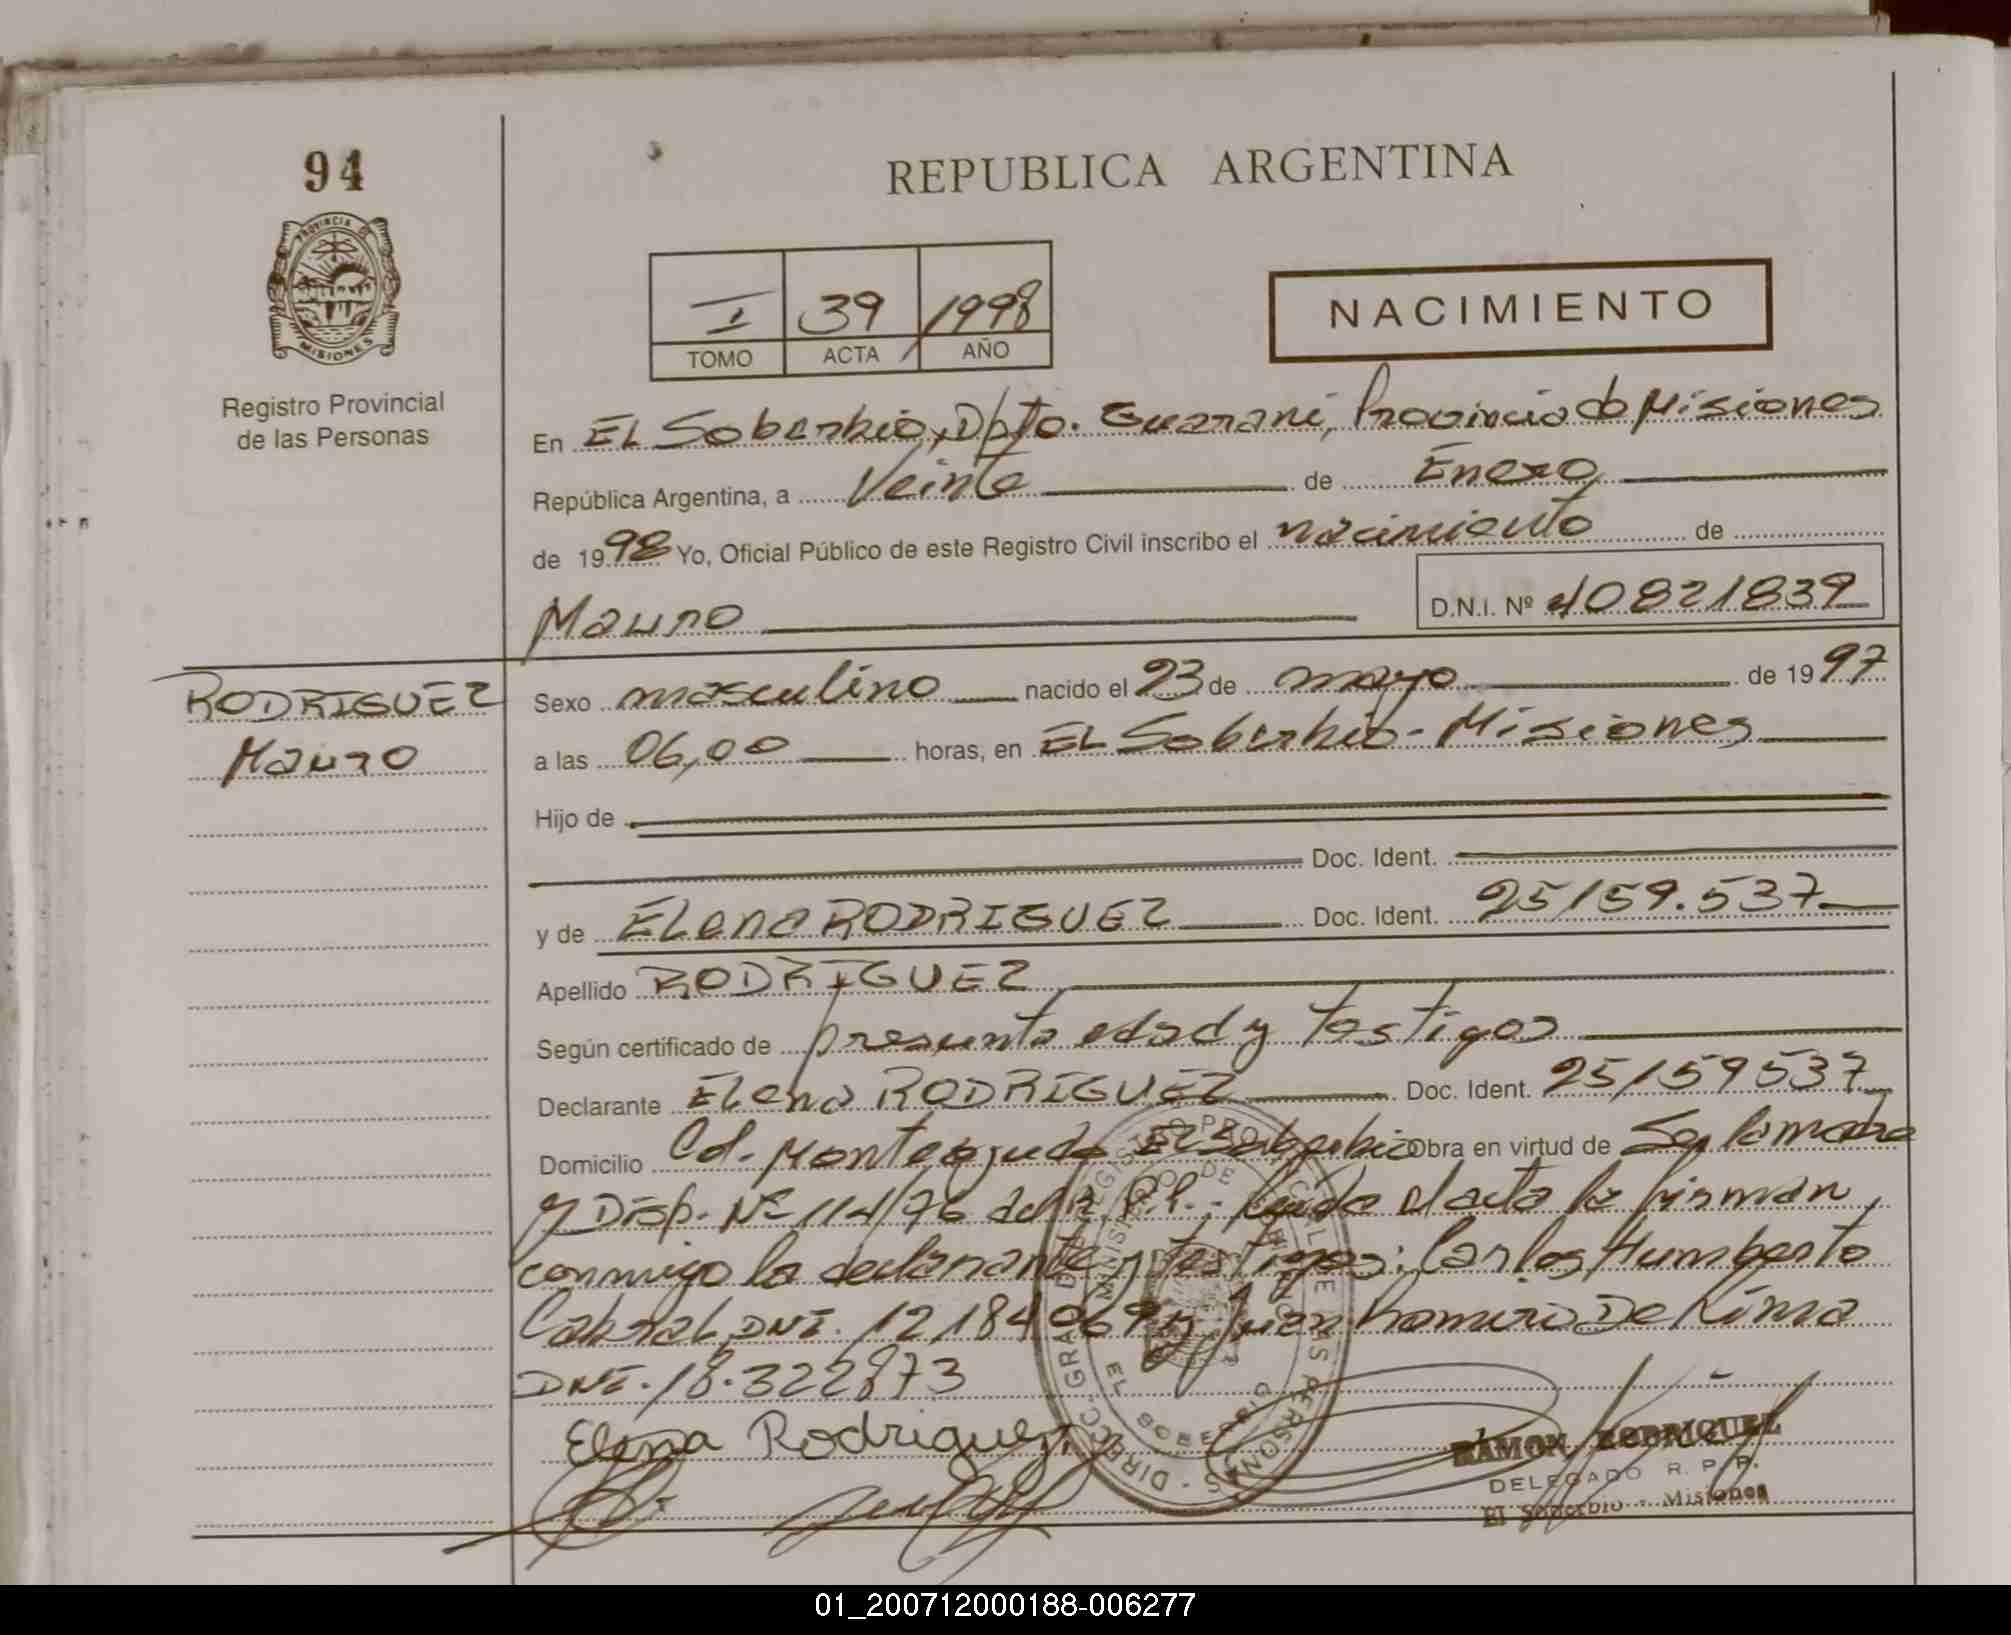 94
REPUBLICA ARGENTINA
PROVINCIA DE
MISIONES
Registro Provincial
de las Personas
I 39 1998
TOMO ACTA AÑO
NACIMIENTO
En EL Soberbio, Dpto. Guarani, Provincia de Misiones
República Argentina, a Veinte de Enero
de 1998 Yo, Oficial Público de este Registro Civil inscribo el nacimiento de
Mauro D.N.I. Nº 40821839
RODRIGUEZ
Mauro
Sexo masculino nacido el 23 de mayo de 1997
a las 06,00 horas, en EL Soberbio - Misiones
Hijo de
Doc. Ident.
y de ELena RODRIGUEZ Doc. Ident. 25159.537
Apellido RODRIGUEZ
Según certificado de presunta edad y testigos
Declarante ELena RODRIGUEZ Doc. Ident. 25159537
Domicilio Col. Monteagudo El Soberbio Obra en virtud de Ser la madre
y Disp. Nº 114/96 del R.P.P. Leida el acta la firman
conmigo la declarante y testigos: Carlos Humberto
Cabral, DNI. 12.184 069 y Juan Romiro De Lima
DNI. 18.322873
Elena Rodriguez
RAMON RODRIGUEZ
DELEGADO R. P. P.
El Soberbio - Misiones
01_200712000188-006277